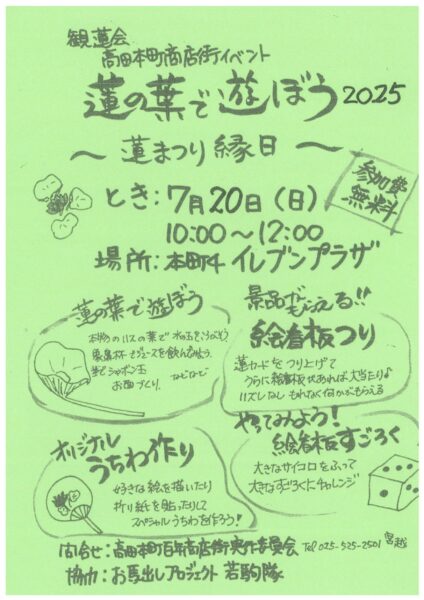 観蓮会
高田本町商店街イベント
蓮の葉で遊ぼう 2025
～ 蓮まつり縁日 ～
参加費
無料
とき：7月20日（日）
10:00～12:00
場所：本町4 イレブンプラザ
蓮の葉で遊ぼう
本物のハスの葉で 水玉をころがそう
象鼻杯でジュースを飲んでみよう
シャボン玉
お面づくり、などなど
景品がもらえる!!
絵看板つり
蓮カードをつり上げて
うらに絵看板があれば大当たり♪
ハズレなし もれなく何かがもらえる
オリジナル
うちわ作り
好きな絵を描いたり
折り紙を貼ったりして
スペシャルうちわを作ろう！
やってみよう！
絵看板すごろく
大きなサイコロをふって
大きなすごろくにチャレンジ
問合せ：高田本町百年商店街実行委員会 Tel 025-525-2501 宮越
協力：お馬出しプロジェクト 若駒隊